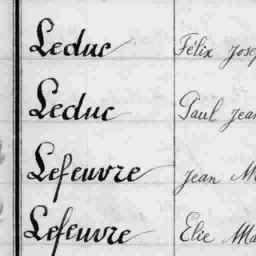 Leduc Félix Jose
Leduc Paul Jean
Lefeuvre Jean M
Lefeuvre Elie Ma